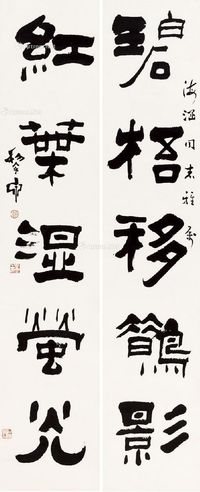 碧梧移鶴影
海涵同志雅属
紅葉湿螢光